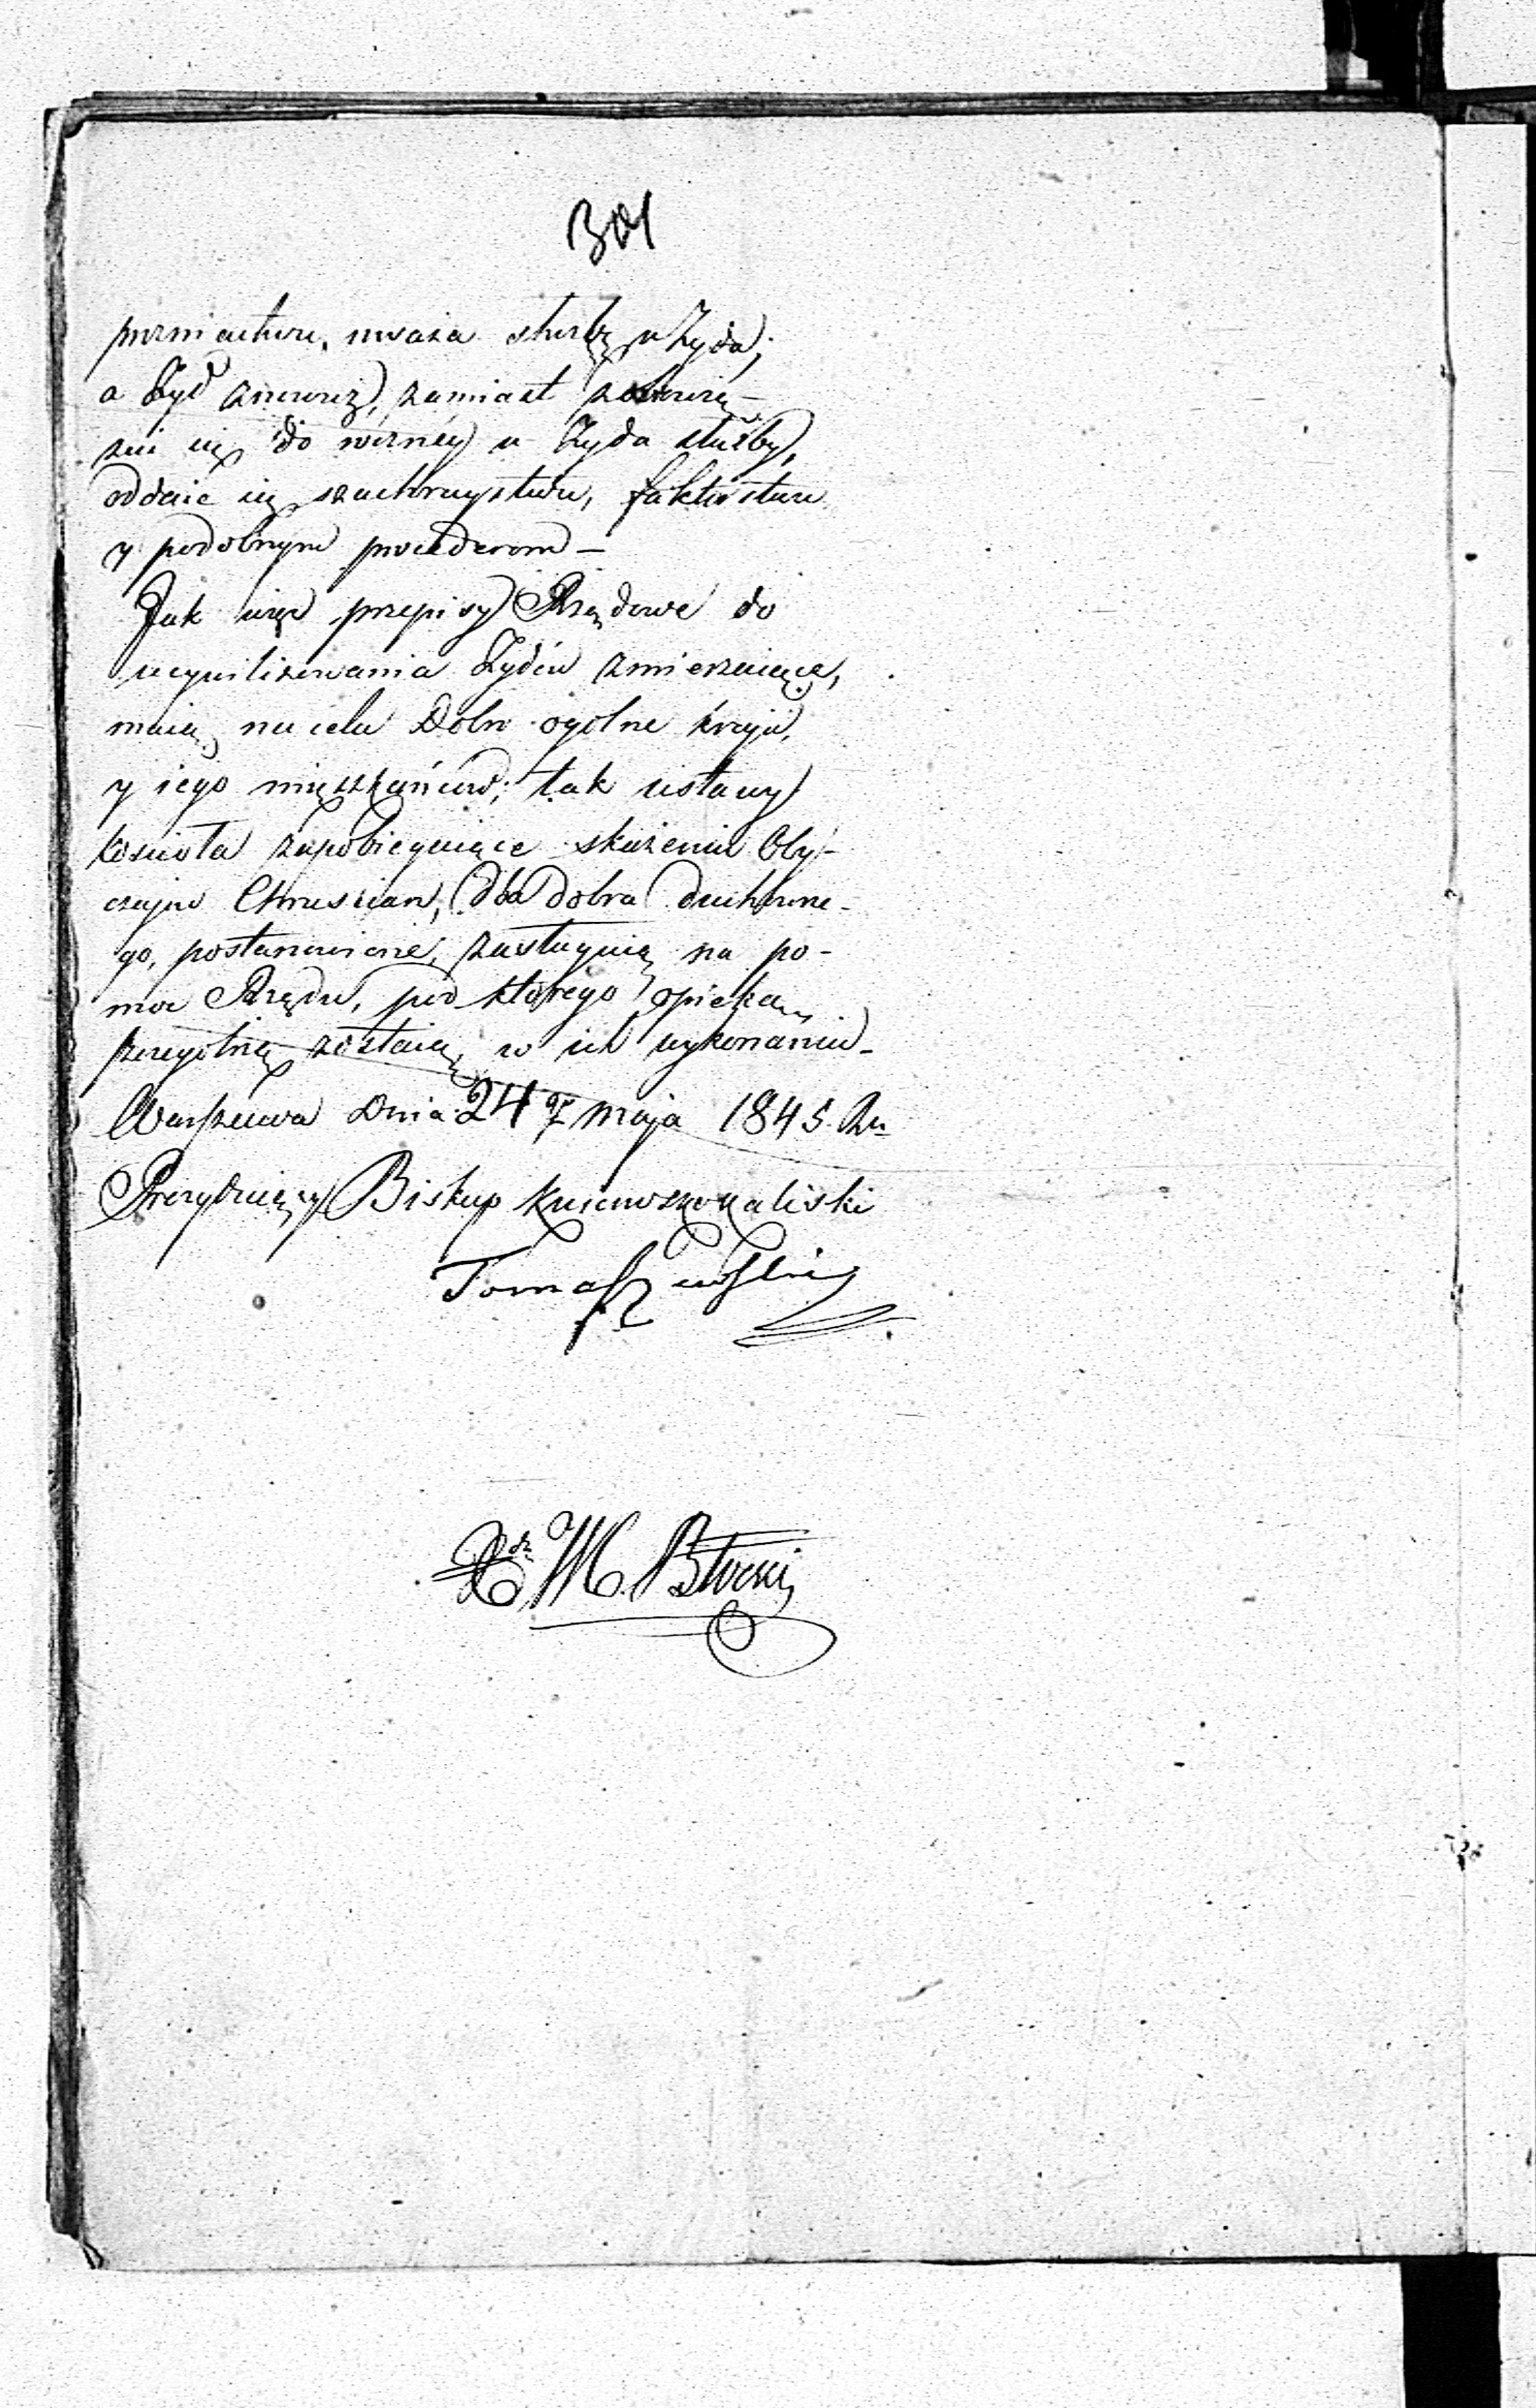 301
uważa służbę u Żyda;
a Żyd zamiast
się do wierney u Żyda służby,
oddaie się szachraystwu, faktorstwu
y podobnym procederom —
Jak więc przepisy Rządowe do
ucywilizowania Żydów zmierzaiące,
maią na celu Dobro ogólne kraju,
y iego mieszkańców; tak ustawy
kościoła zapobiegaiące skażeniu Oby-
czajów Chrześcian, dla dobra duchowne-
go, postanowione, zasługuią na po-
moc Rządu, pod którego opieką
zostaią, w ich wykonaniu —
Warszawa Dnia 24 Maja 1845 Ru
Prezyduiący Biskup Kuiawskokaliski
Tomaszewski
X. M.